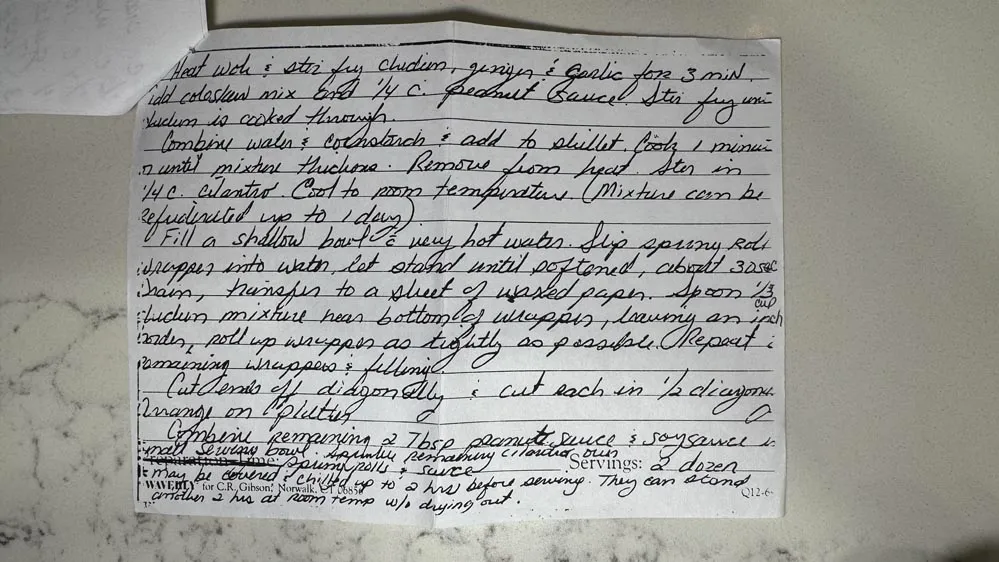 Heat wok & stir fry chicken, ginger & garlic for 3 min.
add coleslaw mix and 1/4 c. peanut sauce. Stir fry un
chicken is cooked through.
Combine water & cornstarch & add to skillet. Cook 1 minu
or until mixture thickens. Remove from heat. Stir in
1/4 c. cilantro. Cool to room temperature (Mixture can be
Refridirated up to 1 day)
Fill a shallow bowl c very hot water. Slip spring roll
wrapper into water, let stand until softened, about 30 sec
Drain, transfer to a sheet of waxed paper. Spoon 1/3 cup
chicken mixture near bottom of wrapper, leaving an inch
border, roll up wrapper as tightly as possible. Repeat c
remaining wrappers & filling.
Cut ends off diagonally & cut each in 1/2 diagona
Arrange on platter
Combine remaining 2 Tbsp peanut sauce & soy sauce in
small serving bowl. Sprinkle remaining cilantro over
reparation Time: spring rolls & sauce Servings: 2 dozen
may be covered & chilled up to 2 hrs before serving. They can stand
WAVERLY for C.R. Gibson, Norwalk, CT 0685 Q12-6
another 2 hrs at room temp w/o drying out.